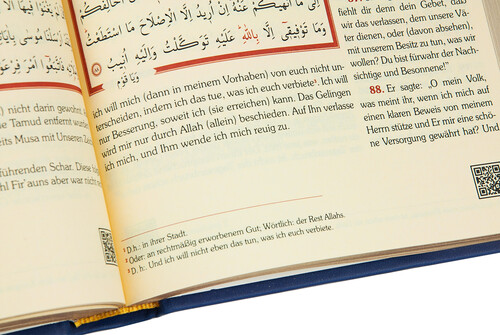 فَاتَّبَعُوا أَمْرَ فِرْعَوْ
) nicht darin gewohnt
Tamud entfernt wurde
eits Musa mit Unseren Ze
führenden Schar. Diese
Fir'auns aber war nicht
إِلَى مَا أَنْهَىٰكُمْ عَنْهُ إِنْ أُرِيدُ إِلَّا الْإِصْلَاحَ مَا اسْتَطَعْتُ
وَمَا تَوْفِيقِيَ إِلَّا بِاللَّهِ عَلَيْهِ تَوَكَّلْتُ وَإِلَيْهِ أُنِيبُ
وَيَا قَوْمِ
ich will mich (dann in meinem Vorhaben) von euch nicht un-
terscheiden, indem ich das tue, was ich euch verbiete³. Ich will
nur Besserung, soweit ich (sie erreichen) kann. Das Gelingen
wird mir nur durch Allah (allein) beschieden. Auf Ihn verlasse
ich mich, und Ihm wende ich mich reuig zu.
¹ D.h., in ihrer Stadt.
² Oder: an rechtmäßig erworbenem Gut; Wörtlich: der Rest Allahs.
³ D. h.: Und ich will nicht eben das tun, was ich euch verbiete.
fiehlt dir denn dein Gebet, daß
wir das verlassen, dem unsere Vä-
ter dienen, oder (davon absehen),
mit unserem Besitz zu tun, was wir
wollen? Du bist fürwahr der Nach-
sichtige und Besonnene!"
88. Er sagte: „O mein Volk,
was meint ihr, wenn ich mich auf
einen klaren Beweis von meinem
Herrn stütze und Er mir eine schö-
ne Versorgung gewährt hat? Und